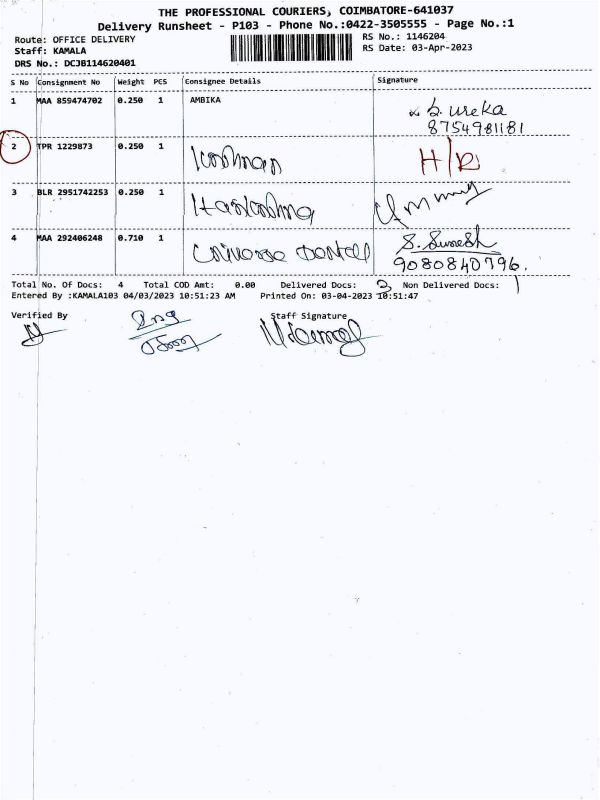 THE PROFESSIONAL COURIERS, COIMBATORE-641037
Delivery Runsheet - P103 - Phone No.:0422-3505555 - Page No.:1
Route: OFFICE DELIVERY
Staff: KAMALA
DRS No.: DCJB114620401
RS No.: 1146204
RS Date: 03-Apr-2023
S No Consignment No Weight PCS Consignee Details Signature
1 MAA 859474702 0.250 1 AMBIKA
8754981181
2 TPR 1229873 0.250 1 H/R
3 BLR 2951742253 0.250 1
4 MAA 292406248 0.710 1 S. Suresh
9080840796.
Total No. Of Docs: 4 Total COD Amt: 0.00 Delivered Docs: 3 Non Delivered Docs: 1
Entered By :KAMALA103 04/03/2023 10:51:23 AM Printed On: 03-04-2023 10:51:47
Verified By Staff Signature